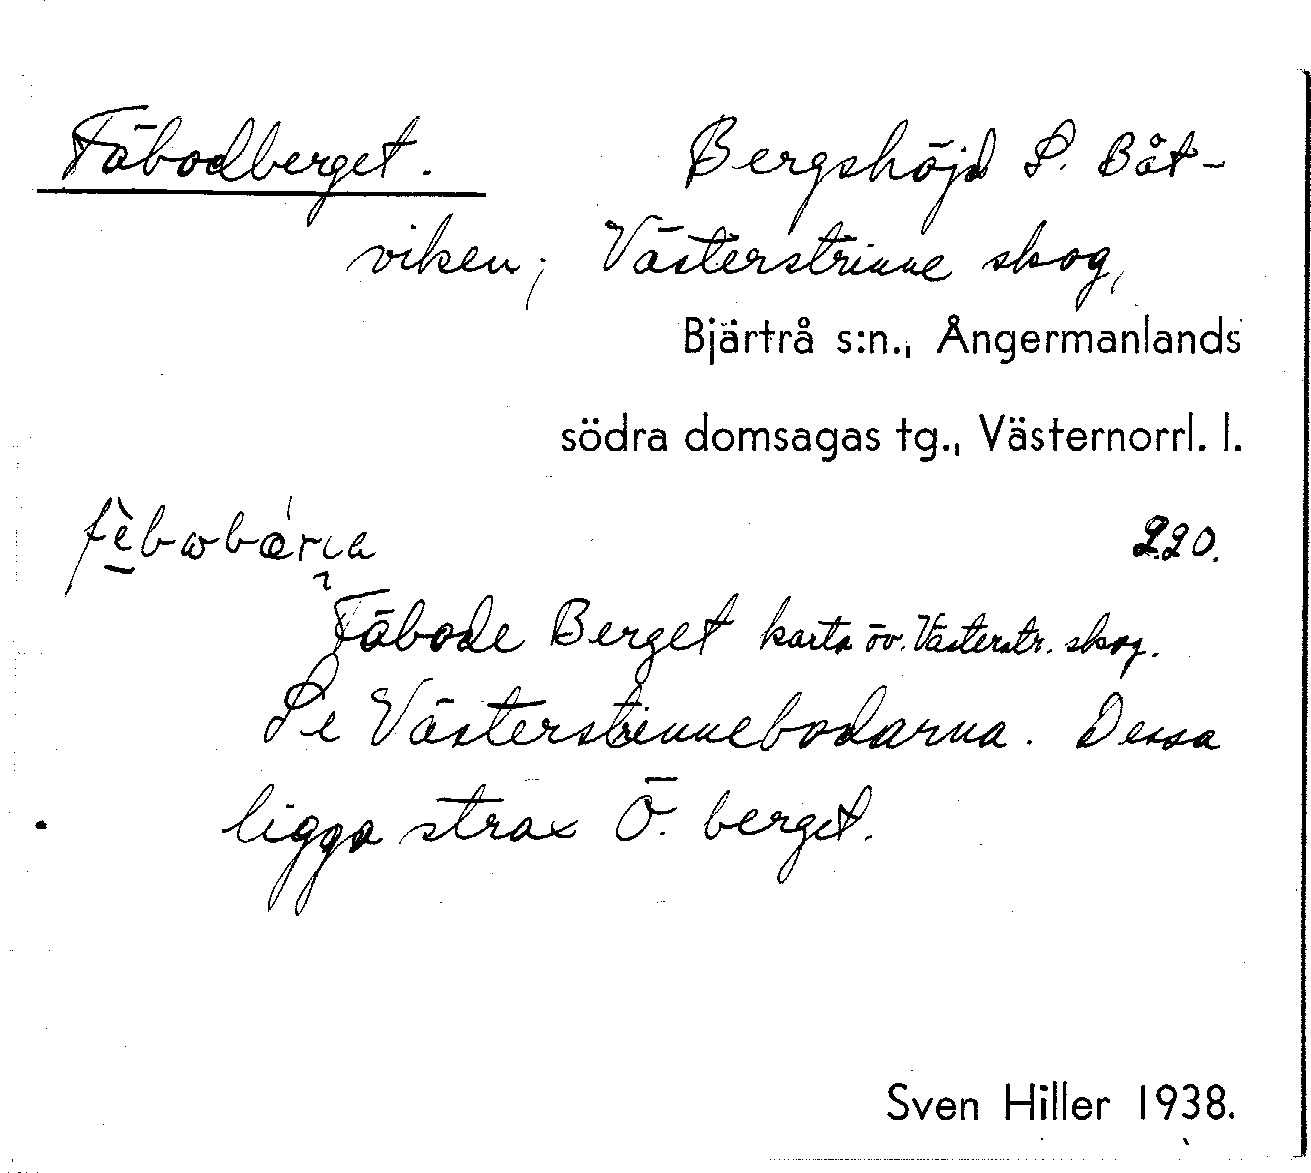 Fäbodberget. Bergshöjd S. Båt-
viken; Västerstrinne skog,
Bjärtrå s:n., Ångermanlands
södra domsagas tg., Västernorrl. l.
220.
Fäbode Berget karta öv. Västerstr. skog.
Se Västerstrinnebodarna. Dessa
ligga strax Ö. berget.
Sven Hiller 1938.